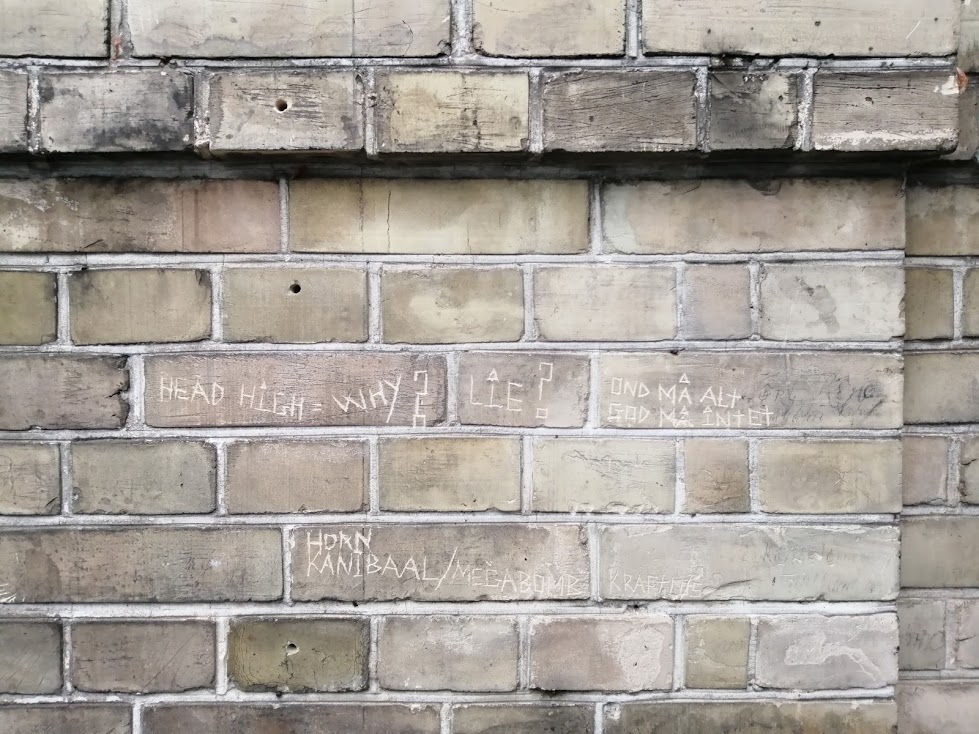 HEAD HIGH = WHY?
LIE?
OND MÅ ALT
GOD MÅ INTET
HORN
KANIBAAL/MEGABOMB